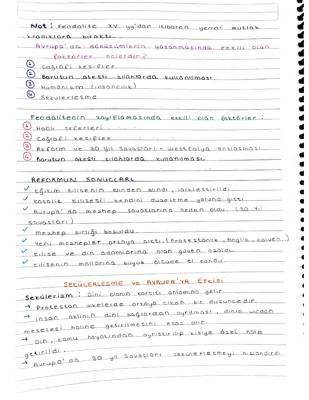 Not: Feodalite XV. yy'dan itibaren yerini mutlak
krallıklara bıraktı.
Avrupa'da dönüşümlerin yaşanmasında etkili olan
faktörler nelerdir?
1 Coğrafi keşifler
2 Barutun ateşli silahlarda kullanılması.
3 Hümanizm (insancılık)
4 Sekülerleşme
Feodalitenin zayıflamasında etkili olan faktörler:
1 Haçlı seferleri
2 Coğrafi keşifler
3 Reform ve 30 Yıl Savaşları - Westfalya Antlaşması
4 Barutun ateşli silahlarda kullanılması.
REFORMUN SONUÇLARI
✓ Eğitim kilisenin elinden alındı, laikleştirildi.
✓ Katolik kilisesi kendini düzeltme yoluna gitti.
✓ Avrupa'da mezhep savaşlarına neden oldu. (30 Yıl
savaşları)
✓ Mezhep birliği bozuldu
✓ Yeni mezhepler ortaya çıktı. (Protestanlık, Anglik., Kalven..)
✓ Kilise ve din adamlarına olan güven azaldı.
✓ Kilisenin mallarına büyük ölçüde el kondu.
SEKÜLERLEŞME ve AVRUPA'YA ETKİSİ
Sekülerizm: Dini olanın karşıtı anlamına gelir.
→ Protestan ülkelerde ortaya çıkan bir düşüncedir.
→ İnsan aklının dini bağlardan ayrılması, dinin vicdan
meselesi haline getirilmesini esas alır.
→ Din, kamu hayatından ayrıştırılıp kişiye özel hale
getirildi.
→ Avrupa'da 30 yıl Savaşları sekülerleşmeyi hızlandırdı